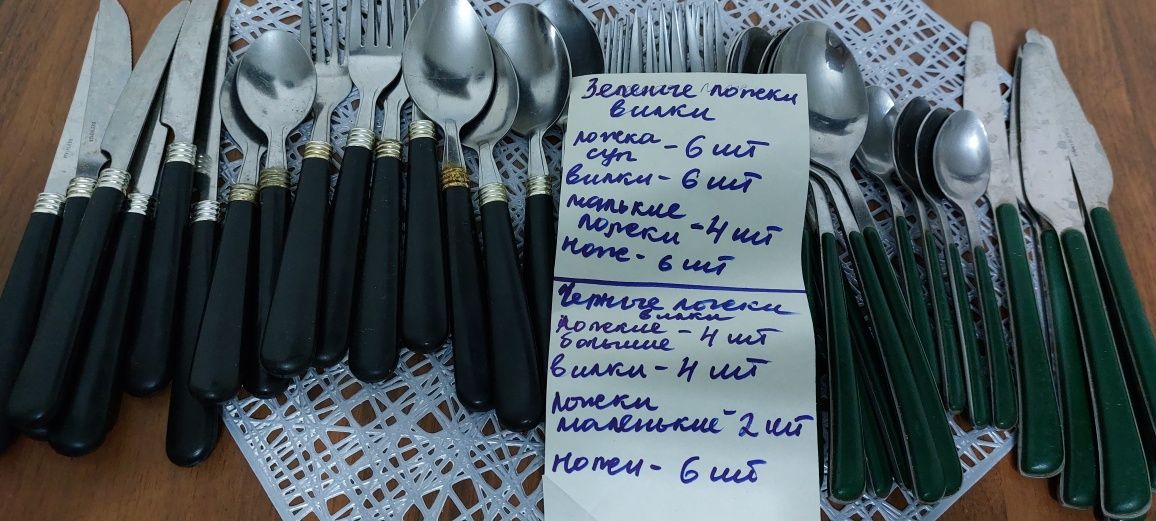 Зеленые ложки
вилки
ложка
суп - 6 шт
вилки - 6 шт
малькие
ложки - 4 шт
ноже - 6 шт
Черные ложки
вилки
ложкие
большие - 4 шт
вилки - 4 шт
ложки
маленькие - 2 шт
ножи - 6 шт